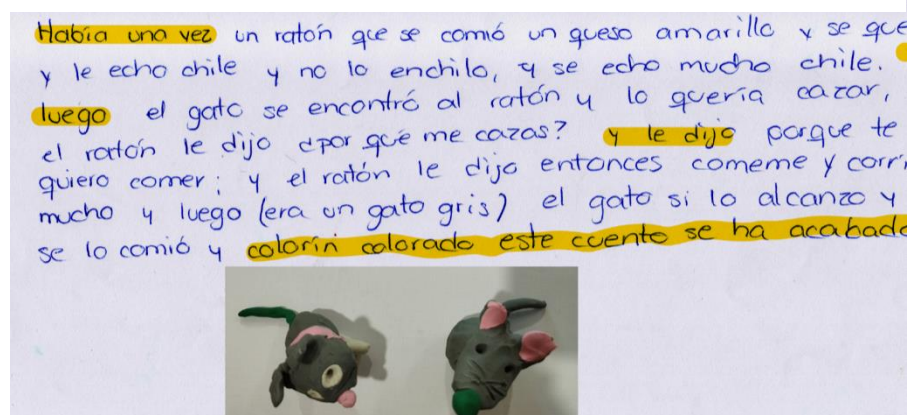 Había una vez un ratón que se comió un queso amarillo y se que
y le echo chile y no lo enchilo, y se echo mucho chile.
luego el gato se encontró al ratón y lo quería cazar,
el ratón le dijo ¿por qué me cazas? y le dijo porque te
quiero comer; y el ratón le dijo entonces comeme y corri
mucho y luego (era un gato gris) el gato si lo alcanzo y
se lo comió y colorín colorado este cuento se ha acabado